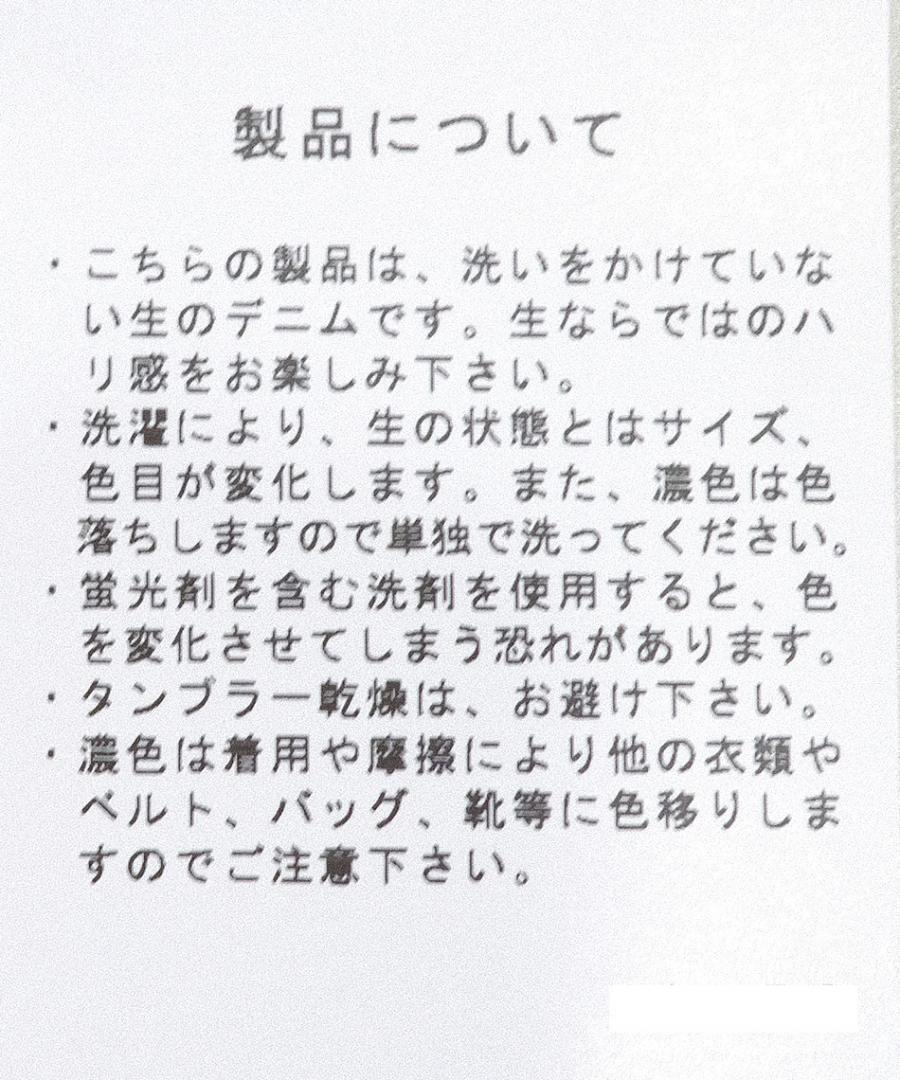 製品について
・こちらの製品は、洗いをかけていな
い生のデニムです。生ならではのハ
リ感をお楽しみ下さい。
・洗濯により、生の状態とはサイズ、
色目が変化します。また、濃色は色
落ちしますので単独で洗ってください。
・蛍光剤を含む洗剤を使用すると、色
を変化させてしまう恐れがあります。
・タンブラー乾燥は、お避け下さい。
・濃色は着用や摩擦により他の衣類や
ベルト、バッグ、靴等に色移りしま
すのでご注意下さい。